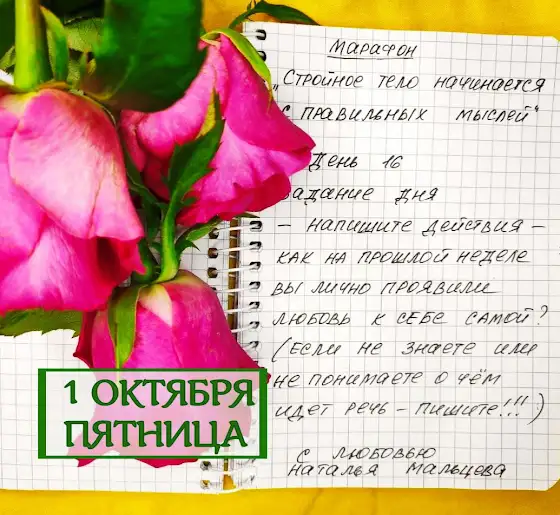 Марафон
„Стройное тело начинается
с правильных мыслей"
День 16
Задание дня
– Напишите действия –
как на прошлой неделе
вы лично проявили
любовь к себе самой?
(Если не знаете или
не понимаете о чём
идет речь – пишите!!!)
с любовью
Наталья Мальцева
1 ОКТЯБРЯ
ПЯТНИЦА